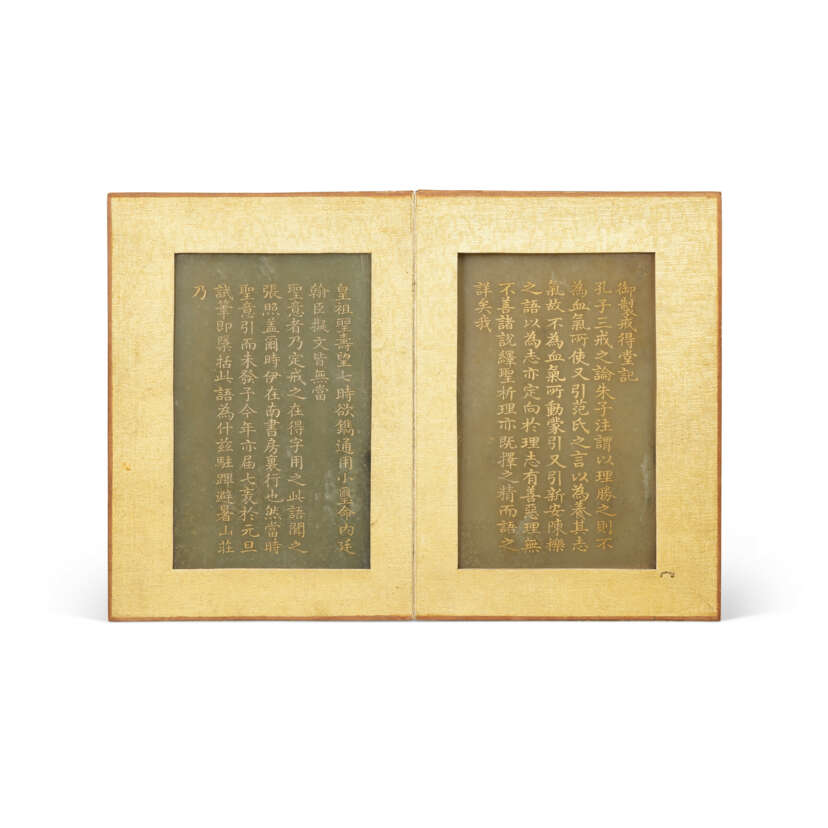 御製戒得堂記
孔子三戒之論朱子注謂以理勝之則不
為血氣所使又引范氏之言以為養其志
氣故不為血氣所動蒙引又引新安陳櫟
之語以為志亦定向於理志有善惡理無
不善諸說繹聖析理亦既擇之精而語之
詳矣我
皇祖聖壽望七時欲鐫通用小璽命內廷
翰臣擬文皆無當
聖意者乃定戒之在得字用之此語聞之
張照盖爾時伊在南書房裏行也然當時
聖意引而未發予今年亦屆七袠於元旦
試筆即檃括此語為什茲駐蹕避暑山莊
乃